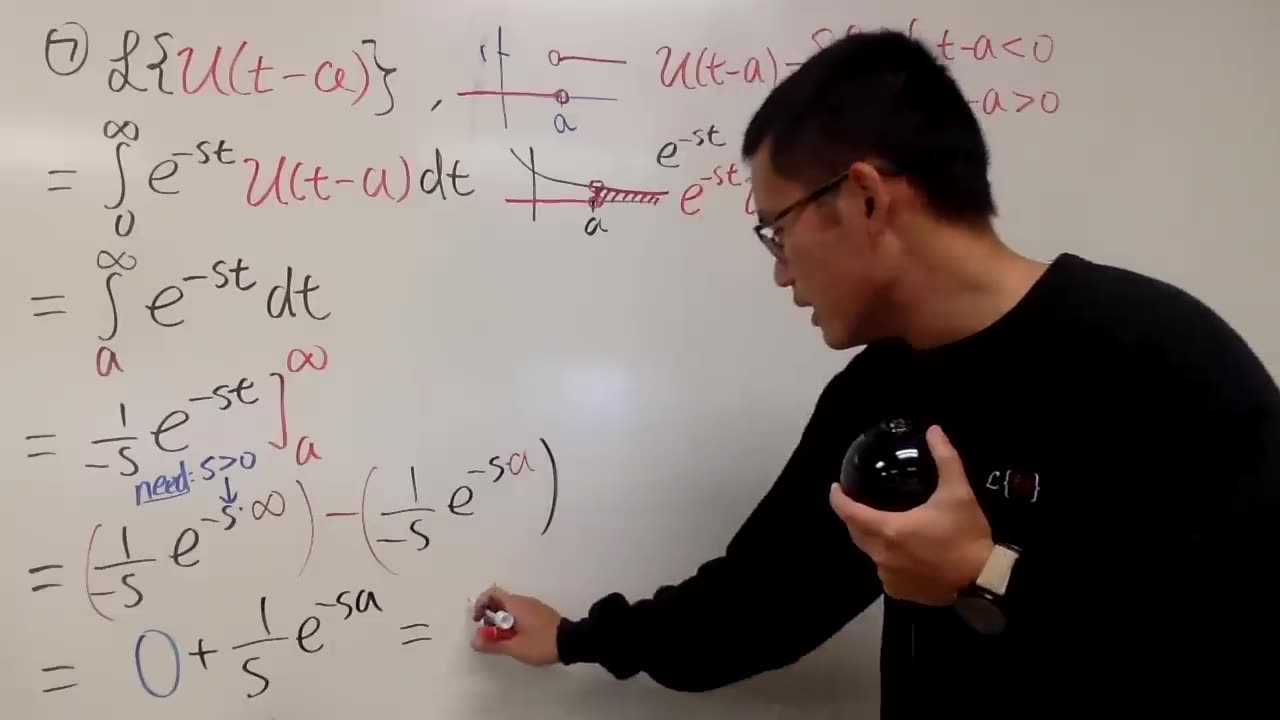 ⑦ ℒ{U(t-a)},
a
U(t-a)
t-a<0
-a>0
= ∫₀^∞ e^{-st} U(t-a) dt
e^{-st}
e^{-st}
a
= ∫ₐ^∞ e^{-st} dt
= 1/-s e^{-st} ]ₐ^∞
need: s>0
= (1/-s e^{-s·∞}) - (1/-s e^{-sa})
= 0 + 1/s e^{-sa} =
ℒ{ }